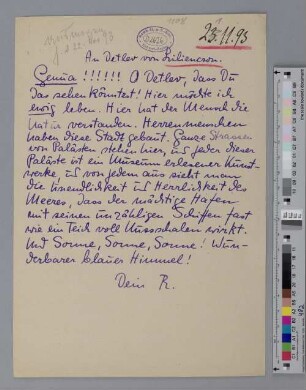 23.11.93
An Detlev von Liliencron.
Genua !!!!!! O Detlev, dass Du
das sehen könntest! Hier möchte ich
ewig leben. Hier hat der Mensch die
Natur verstanden. Herrenmenschen
haben diese Stadt gebaut. Ganze Strassen
von Palästen stehen hier, und jeder dieser
Paläste ist ein Museum erlesener Kunst-
werke, und von jedem aus sieht man
die Unendlichkeit und Herrlichkeit des
Meeres, dass der mächtige Hafen
mit seinen unzähligen Schiffen fast
wie ein Teich voll Nussschalen wirkt.
Und Sonne, Sonne, Sonne! Wun-
derbarer blauer Himmel!
Dein R.